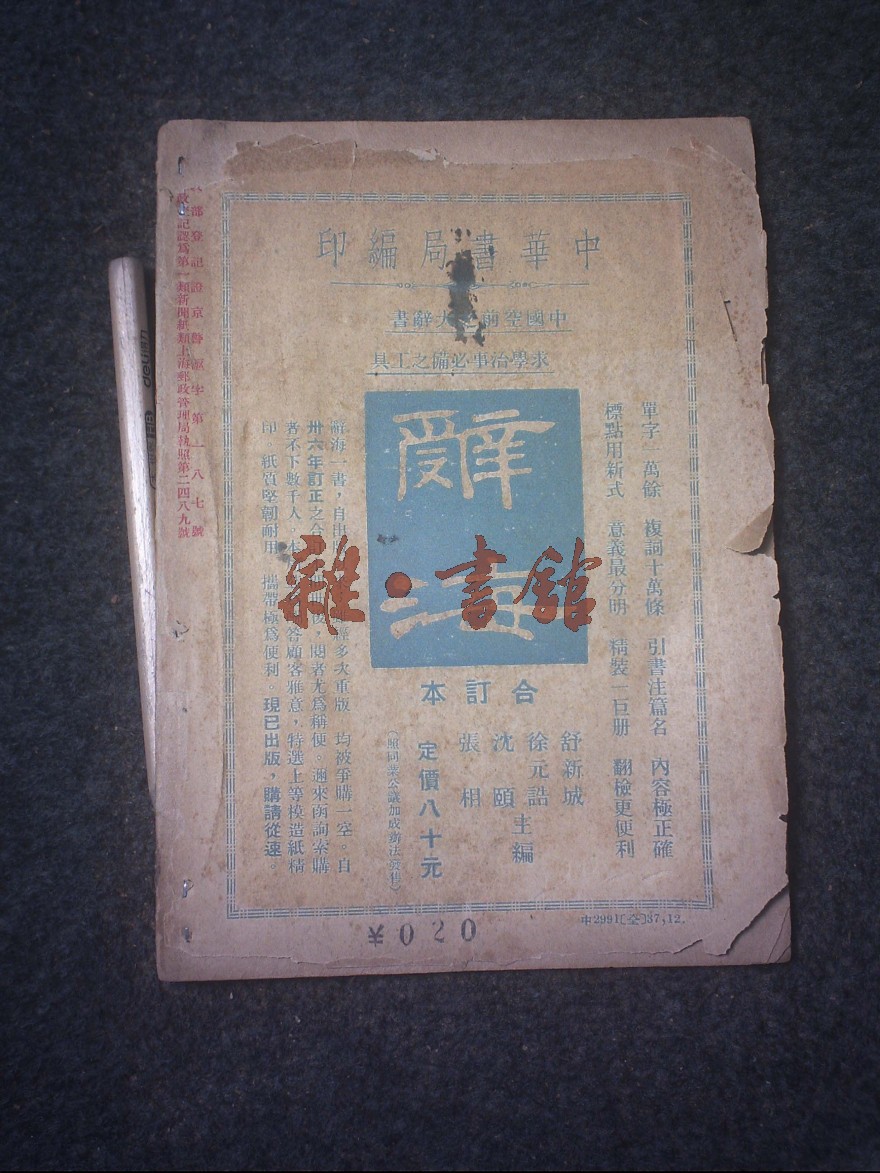 中華書局編印
中國空前之大辭書
求學治事必備之工具
單字一萬餘 複詞十萬條 引書注篇名 內容極正確
標點用新式 意義最分明 精裝一巨册 翻檢更便利
辭海
合訂本
舒新城
徐元誥
沈頤
張相
主編
定價八十元
(照同業公議加成辦法發售)
辭海一書,自出 經多次重版 均被爭購一空。自
卅六年訂正之合 後,閱者尤爲稱便。邇來函詢索購
者不下數千人。本 答顧客雅意,特選上等模造紙精
印。紙質堅韌耐用 攜帶極爲便利。現已出版,購請從速。
部登記證京警滬字第一八七號
政登記認爲第一類新聞紙類上海郵政管理局執照第二四八九號
中2991(全)37,12.
¥020
雜·書館
delien